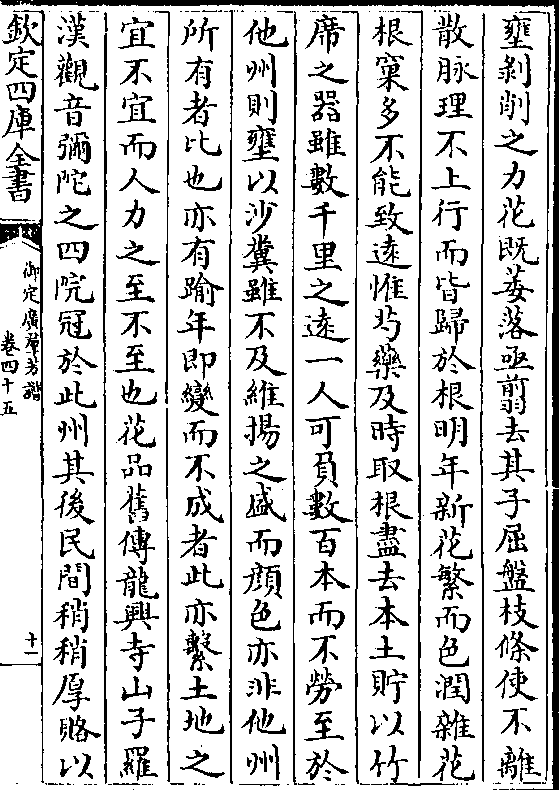 壅剥削之力花既萎落亟翦去其子屈盤枝條使不離
散脉理不上行而皆歸於根明年新花繁而色潤雜花
根窠多不能致遠惟芍藥及時取根盡去本土貯以竹
席之器雖數千里之遠一人可負數百本而不勞至於
他州則壅以沙糞雖不及維揚之盛而顔色亦非他州
所有者比也亦有踰年即變而不成者此亦繫土地之
宜不宜而人力之至不至也花品舊傳龍興寺山子羅
漢觀音彌陀之四院冠於此州其後民間稍稍厚賂以
欽定四庫全書
御定廣羣芳譜
卷四十五
十一